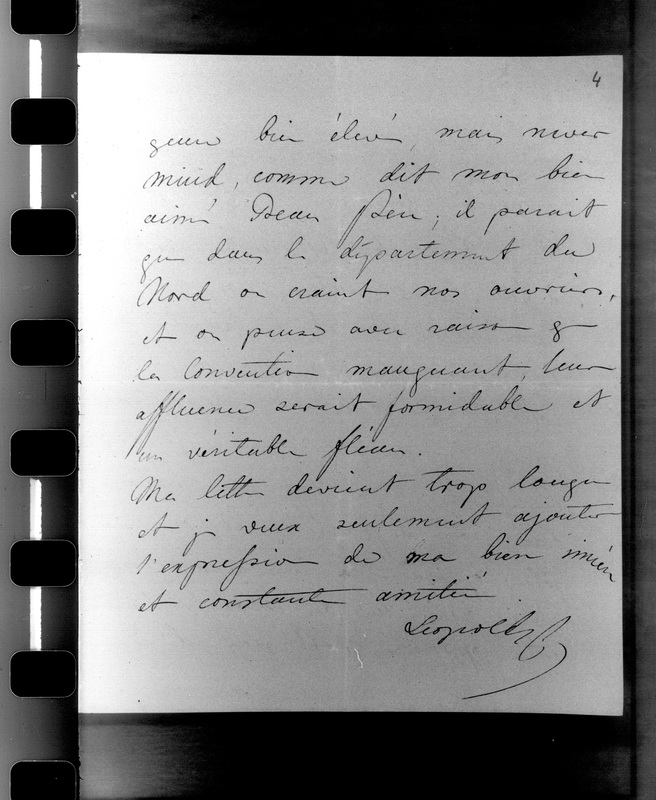 4
guère bien élevé, mais never
mind, comme dit mon bien
aimé Beau Père; il parait
que dans le département du
Nord on craint nos ouvriers,
et on pense avec raison que
la Convention manquant, leur
affluence serait formidable et
un véritable fléau.
Ma lettre devient trop longue
et je veux seulement ajouter
l'expression de ma bien sincère
et constante amitié.
Leopold